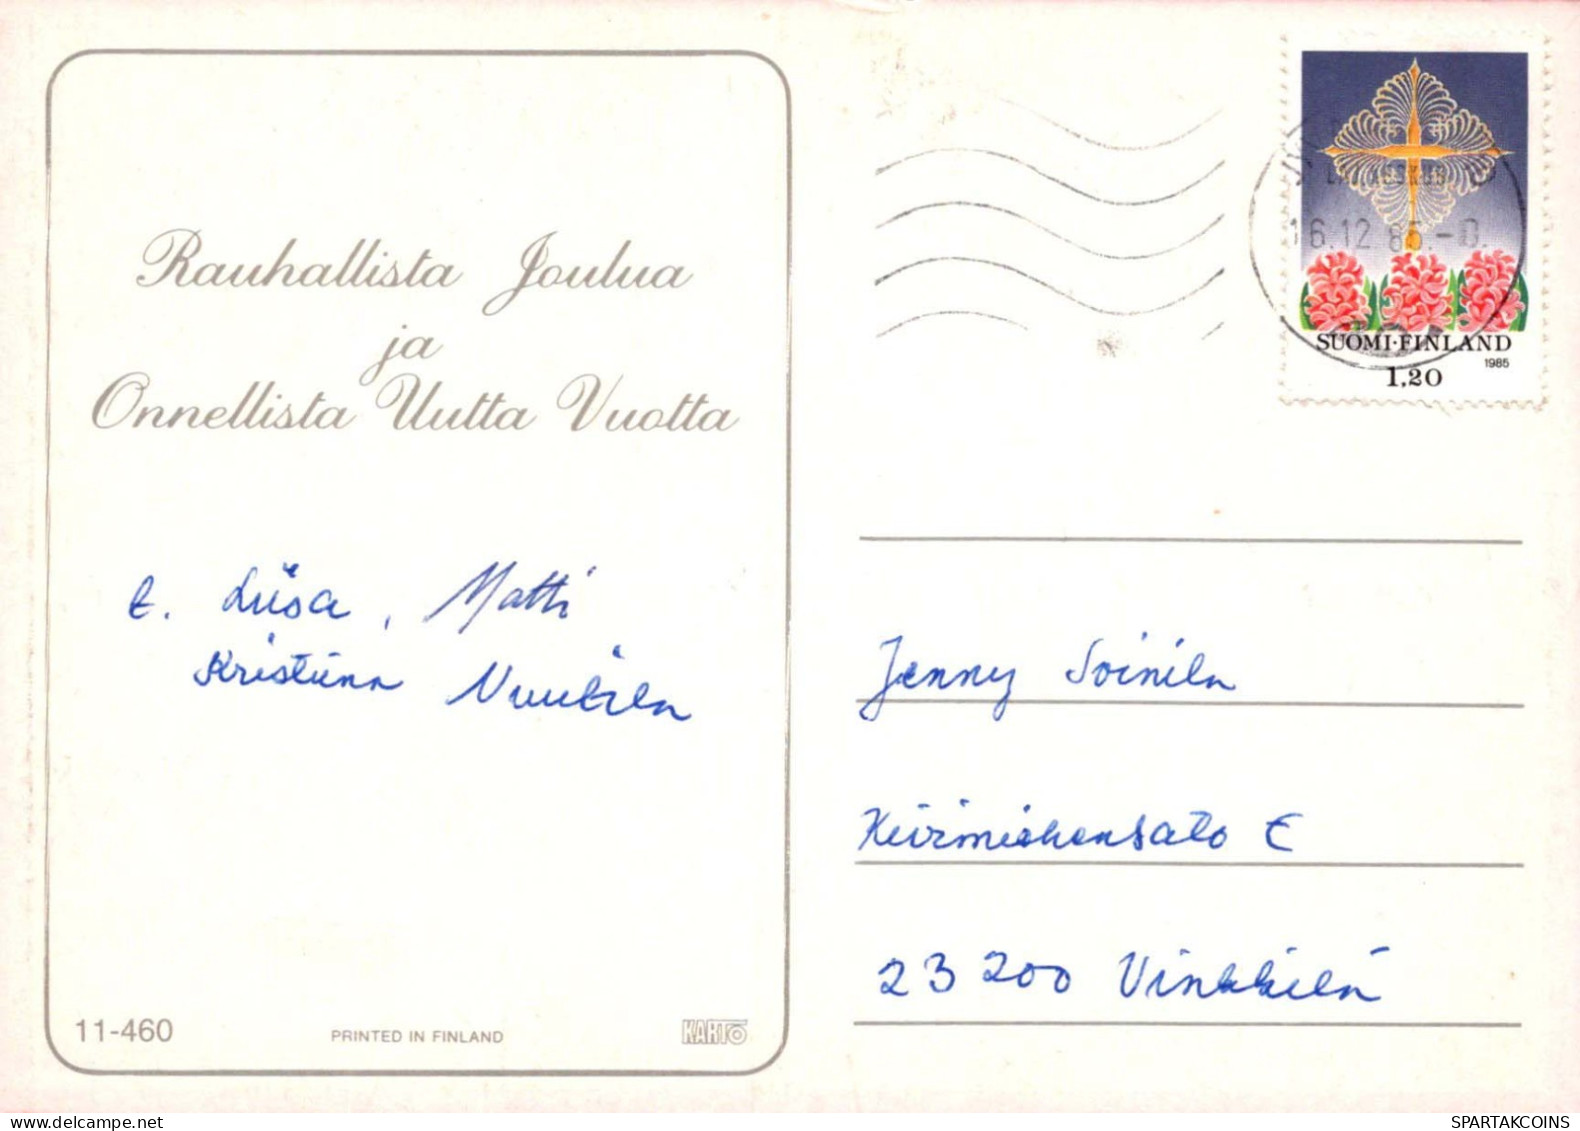 Rauhallista Joulua
ja
Onnellista Uutta Vuotta
t. Liisa, Matti
Kristiina Nuutila
11-460
PRINTED IN FINLAND
KARTO
16.12.85.-0.
SUOMI·FINLAND
1985
1,20
Jenny Soinila
23200 Vinkkilä
SPARTAKCOINS